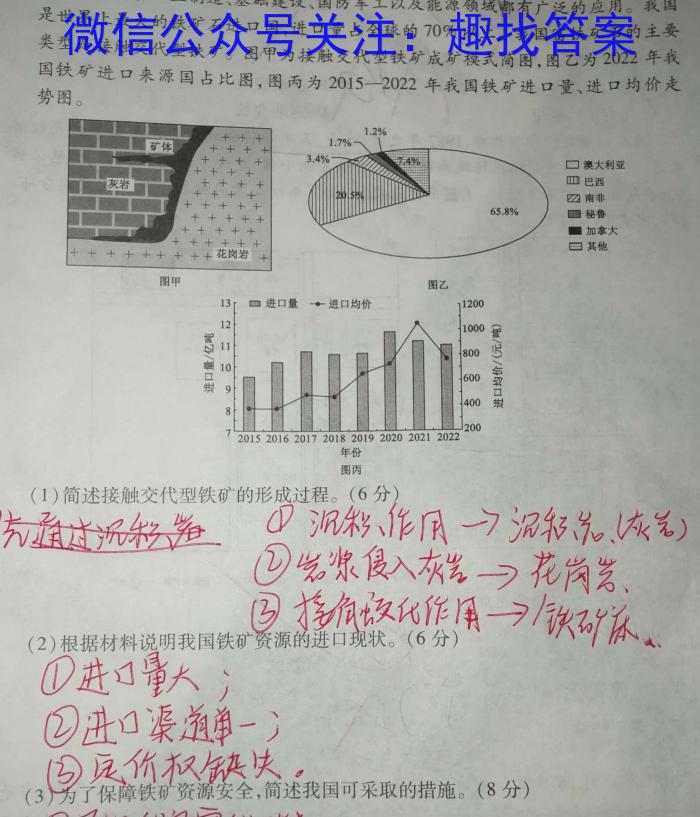 是世界
进口量占全球的70%
的主要
微信公众号关注：趣找答案
图甲为接触交代型铁矿成矿模式简图,图乙为2022年我
国铁矿进口来源国占比图,图丙为2015—2022年我国铁矿进口量、进口均价走
势图。
矿体
灰岩
花岗岩
图甲
1.2%
1.7%
3.4%
7.4%
20.5%
65.8%
澳大利亚
巴西
南非
秘鲁
加拿大
其他
图乙
进口量 进口均价
进口量/亿吨
13
12
11
10
9
8
7
1200
1000
800
600
400
200
进口均价/(元/吨)
2015 2016 2017 2018 2019 2020 2021 2022
年份
图丙
(1)简述接触交代型铁矿的形成过程。(6分)
先通过沉积岩
①沉积作用→沉积岩(灰岩)
②岩浆侵入灰岩→花岗岩
③接触交代作用→铁矿床
(2)根据材料说明我国铁矿资源的进口现状。(6分)
①进口量大；
②进口渠道单一；
③定价权缺失。
(3)为了保障铁矿资源安全,简述我国可采取的措施。(8分)